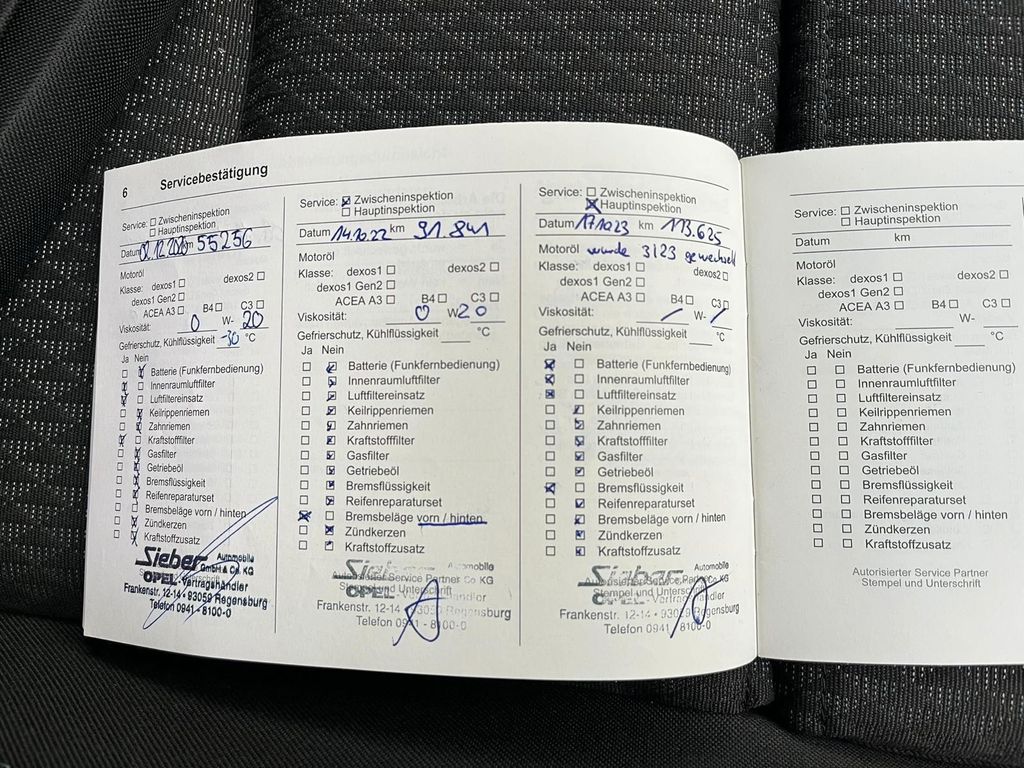 6 Servicebestätigung
Service: ☐ Zwischeninspektion
☐ Hauptinspektion
Datum 02.12.2020 km 55256
Motoröl
Klasse: dexos1 ☐ dexos2 ☐
dexos1 Gen2 ☐
ACEA A3 ☐ B4 ☐ C3 ☐
Viskosität: 0 W- 20
Gefrierschutz, Kühlflüssigkeit -30 °C
Ja Nein
Batterie (Funkfernbedienung)
Innenraumluftfilter
Luftfiltereinsatz
Keilrippenriemen
Zahnriemen
Kraftstofffilter
Gasfilter
Getriebeöl
Bremsflüssigkeit
Reifenreparaturset
Bremsbeläge vorn / hinten
Zündkerzen
Kraftstoffzusatz
Sieber Automobile
GmbH & Co. KG
OPEL-Vertragshändler
Frankenstr. 12-14 • 93059 Regensburg
Telefon 0941 - 8100-0
Service: ☒ Zwischeninspektion
☐ Hauptinspektion
Datum 14.10.22 km 91.841
Motoröl
Klasse: dexos1 ☐ dexos2 ☐
dexos1 Gen2 ☐
ACEA A3 ☐ B4 ☐ C3 ☐
Viskosität: 0 W 20
Gefrierschutz, Kühlflüssigkeit °C
Ja Nein
Batterie (Funkfernbedienung)
Innenraumluftfilter
Luftfiltereinsatz
Keilrippenriemen
Zahnriemen
Kraftstofffilter
Gasfilter
Getriebeöl
Bremsflüssigkeit
Reifenreparaturset
Bremsbeläge vorn / hinten
Zündkerzen
Kraftstoffzusatz
Autorisierter Service Partner
Stempel und Unterschrift
Sieber Automobile
Co KG
OPEL-Vertragshändler
Frankenstr. 12-14 • 93059 Regensburg
Telefon 0941 - 8100-0
Service: ☐ Zwischeninspektion
☒ Hauptinspektion
Datum 171023 km 113.625
Motoröl wurde 3123 gewechselt
Klasse: dexos1 ☐ dexos2 ☐
dexos1 Gen2 ☐
ACEA A3 ☐ B4 ☐ C3 ☐
Viskosität: / W- /
Gefrierschutz, Kühlflüssigkeit °C
Ja Nein
Batterie (Funkfernbedienung)
Innenraumluftfilter
Luftfiltereinsatz
Keilrippenriemen
Zahnriemen
Kraftstofffilter
Gasfilter
Getriebeöl
Bremsflüssigkeit
Reifenreparaturset
Bremsbeläge vorn / hinten
Zündkerzen
Kraftstoffzusatz
Autorisierter Service Partner
Stempel und Unterschrift
Sieber Automobile
Co KG
OPEL-Vertragshändler
Frankenstr. 12-14 • 93059 Regensburg
Telefon 0941 / 8100-0
Service: ☐ Zwischeninspektion
☐ Hauptinspektion
Datum km
Motoröl
Klasse: dexos1 ☐ dexos2 ☐
dexos1 Gen2 ☐
ACEA A3 ☐ B4 ☐ C3 ☐
Viskosität: W-
Gefrierschutz, Kühlflüssigkeit °C
Ja Nein
Batterie (Funkfernbedienung)
Innenraumluftfilter
Luftfiltereinsatz
Keilrippenriemen
Zahnriemen
Kraftstofffilter
Gasfilter
Getriebeöl
Bremsflüssigkeit
Reifenreparaturset
Bremsbeläge vorn / hinten
Zündkerzen
Kraftstoffzusatz
Autorisierter Service Partner
Stempel und Unterschrift